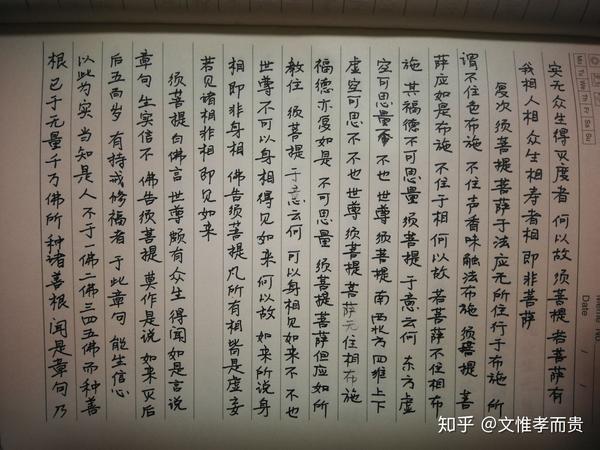 实无众生得灭度者 何以故 须菩提 若菩萨有
我相人相众生相寿者相 即非菩萨
复次 须菩提菩萨于法应无所住行于布施 所
谓不住色布施 不住声香味触法布施 须菩提 菩
萨应如是布施 不住于相 何以故 若菩萨不住相布
施 其福德不可思量 须菩提 于意云何 东方虚
空可思量不 不也 世尊 须菩提 南西北方四维上下
虚空可思不 不也世尊 须菩提 菩萨无住相布施
福德亦复如是 不可思量 须菩提菩萨但应如所
教住 须菩提 于意云何 可以身相见如来不 不也
世尊 不可以身相得见如来 何以故 如来所说身
相 即非身相 佛告须菩提 凡所有相 皆是虚妄
若见诸相非相 即见如来
须菩提白佛言 世尊 颇有众生得闻如是言说
章句 生实信不 佛告须菩提 莫作是说 如来灭后
后五百岁 有持戒修福者 于此章句 能生信心
以此为实 当知是人 不于一佛二佛三四五佛而种善
根 已于无量千万佛所 种诸善根 闻是章句 乃
Mo Tu We Th Fr Sa Su
Date / /
知乎 @文惟孝而贵